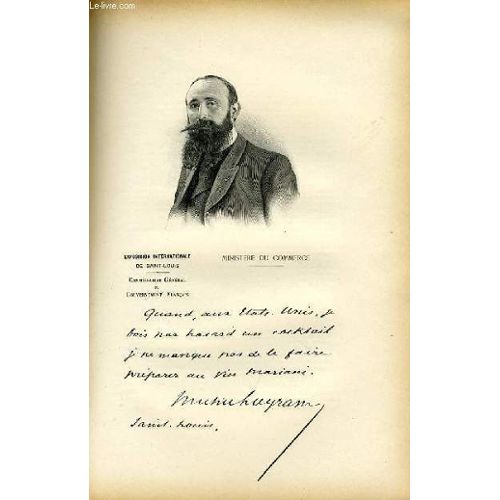 Le-livre.com
EXPOSITION INTERNATIONALE
DE SAINT-LOUIS
COMMISSARIAT GÉNÉRAL
DU
GOUVERNEMENT FRANÇAIS
MINISTÈRE DU COMMERCE
Quand, aux Etats-Unis, je
bois par hasard un cocktail
je ne manque pas de le faire
préparer au vin Mariani.
Saint-Louis.